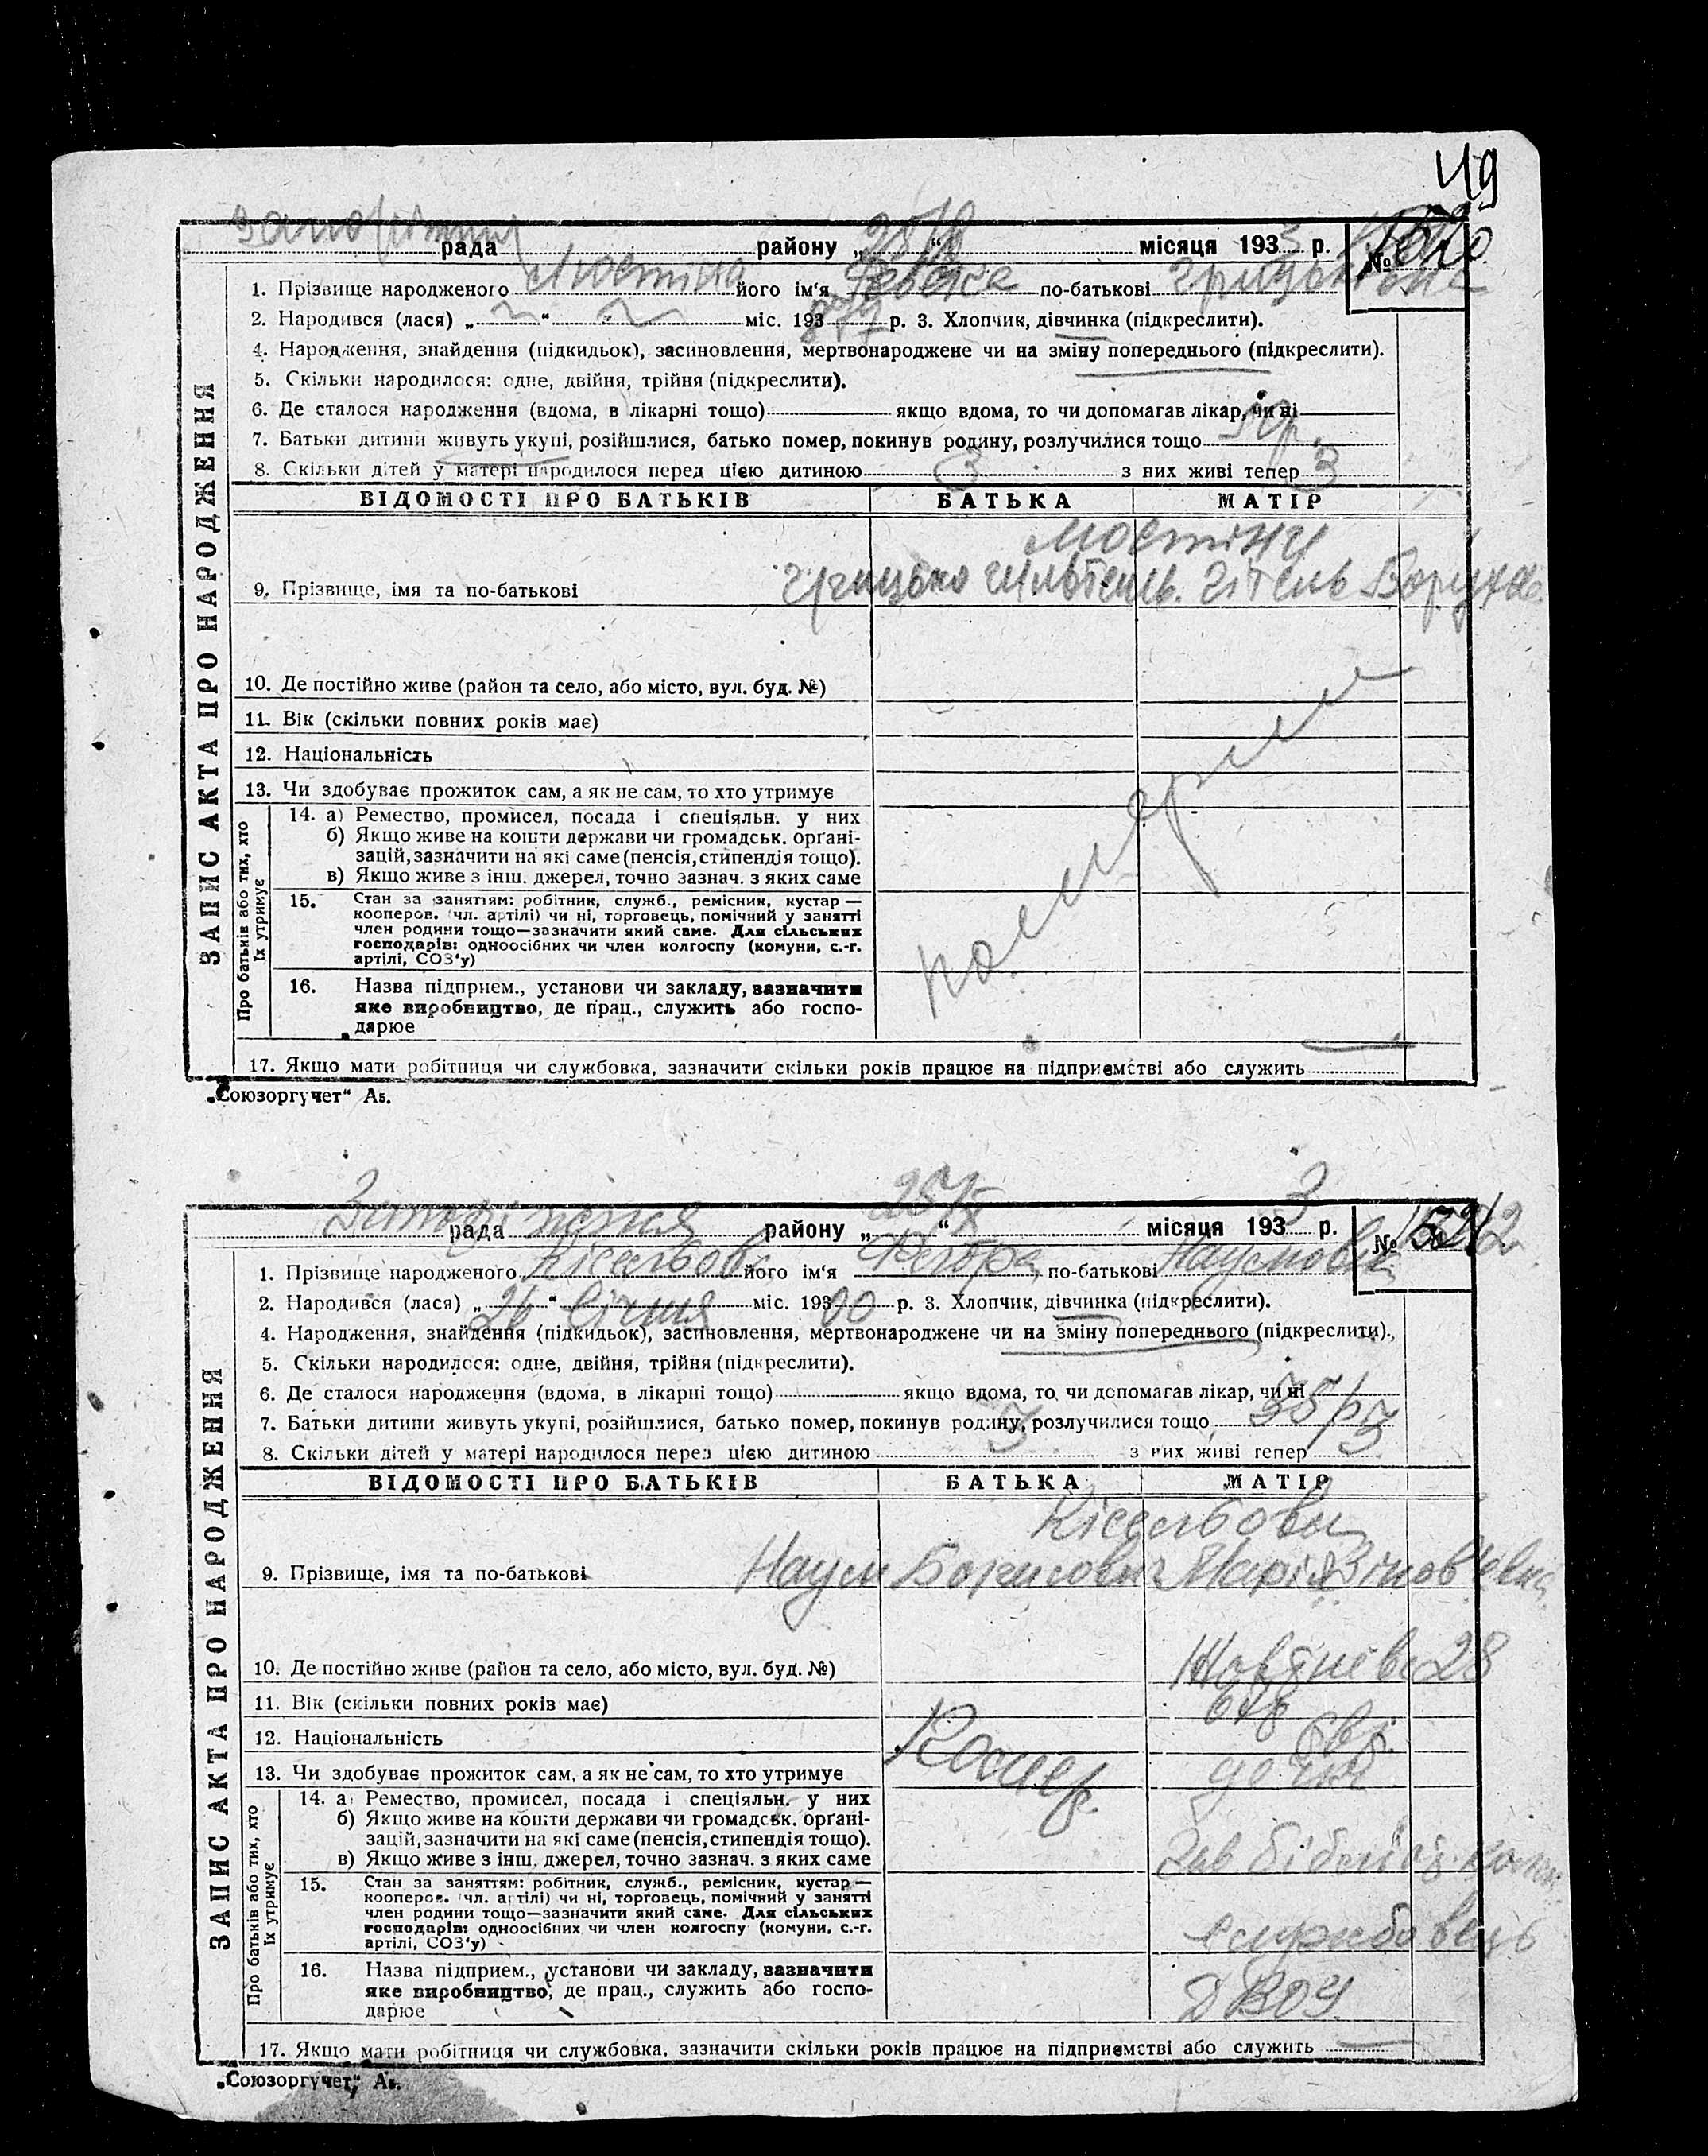 49
рада району „25/X“ місяця 1933 р. №
1. Прізвище народженого його ім'я по-батькові
2. Народився (лася) „ “ міс. 193 р. 3. Хлопчик, дівчинка (підкреслити).
4. Народження, знайдення (підкидьок), засиновлення, мертвонароджене чи на зміну попереднього (підкреслити).
5. Скільки народилося: одне, двійня, трійня (підкреслити).
6. Де сталося народження (вдома, в лікарні тощо) якщо вдома, то чи допомагав лікар, чи ні
7. Батьки дитини живуть укупі, розійшлися, батько помер, покинув родину, розлучилися тощо
8. Скільки дітей у матері народилося перед цією дитиною 3 з них живі тепер 3
ВІДОМОСТІ ПРО БАТЬКІВ БАТЬКА МАТІР
9. Прізвище, імя та по-батькові Гітель Борух
10. Де постійно живе (район та село, або місто, вул. буд. №)
11. Вік (скільки повних років має)
12. Національність
13. Чи здобуває прожиток сам, а як не сам, то хто утримує
14. а) Ремество, промисел, посада і спеціяльн. у них
б) Якщо живе на кошти держави чи громадськ. орґані-
зацій, зазначити на які саме (пенсія, стипендія тощо).
в) Якщо живе з інш. джерел, точно зазнач. з яких саме
15. Стан за заняттям: робітник, служб., ремісник, кустар —
кооперов. (чл. артілі) чи ні, торговець, помічний у занятті
член родини тощо—зазначити який саме. Для сільських
господарів: одноосібних чи член колгоспу (комуни, с.-г.
артілі, СОЗ'у)
16. Назва підприєм., установи чи закладу, зазначити
яке виробництво, де прац., служить або госпо-
дарює
17. Якщо мати робітниця чи службовка, зазначити скільки років працює на підприємстві або служить
ЗАПИС АКТА ПРО НАРОДЖЕННЯ
Про батьків або тих, хто
їх утримує
помер
„Союзоргучет“ Аб.
рада району „25/X“ місяця 1933 р. №
1. Прізвище народженого Кісельова його ім'я по-батькові Наумовна
2. Народився (лася) „26“ Січня міс. 193 00 р. 3. Хлопчик, дівчинка (підкреслити).
4. Народження, знайдення (підкидьок), засиновлення, мертвонароджене чи на зміну попереднього (підкреслити).
5. Скільки народилося: одне, двійня, трійня (підкреслити).
6. Де сталося народження (вдома, в лікарні тощо) якщо вдома, то чи допомагав лікар, чи ні
7. Батьки дитини живуть укупі, розійшлися, батько помер, покинув родину, розлучилися тощо 35р
8. Скільки дітей у матері народилося перед цією дитиною 3 з них живі тепер 3
ВІДОМОСТІ ПРО БАТЬКІВ БАТЬКА МАТІР
Кісельови
9. Прізвище, імя та по-батькові Наум Борисович Марія Зінов'евна
10. Де постійно живе (район та село, або місто, вул. буд. №) 28
11. Вік (скільки повних років має)
12. Національність Євр.
13. Чи здобуває прожиток сам, а як не сам, то хто утримує
14. а) Ремество, промисел, посада і спеціяльн. у них
б) Якщо живе на кошти держави чи громадськ. орґані-
зацій, зазначити на які саме (пенсія, стипендія тощо).
в) Якщо живе з інш. джерел, точно зазнач. з яких саме
Зав
15. Стан за заняттям: робітник, служб., ремісник, кустар —
кооперов. (чл. артілі) чи ні, торговець, помічний у занятті
член родини тощо—зазначити який саме. Для сільських
господарів: одноосібних чи член колгоспу (комуни, с.-г.
артілі, СОЗ'у)
службовець
16. Назва підприєм., установи чи закладу, зазначити
яке виробництво, де прац., служить або госпо-
дарює
ДВОУ.
17. Якщо мати робітниця чи службовка, зазначити скільки років працює на підприємстві або служить
ЗАПИС АКТА ПРО НАРОДЖЕННЯ
Про батьків або тих, хто
їх утримує
Помер
„Союзоргучет“ Аб.